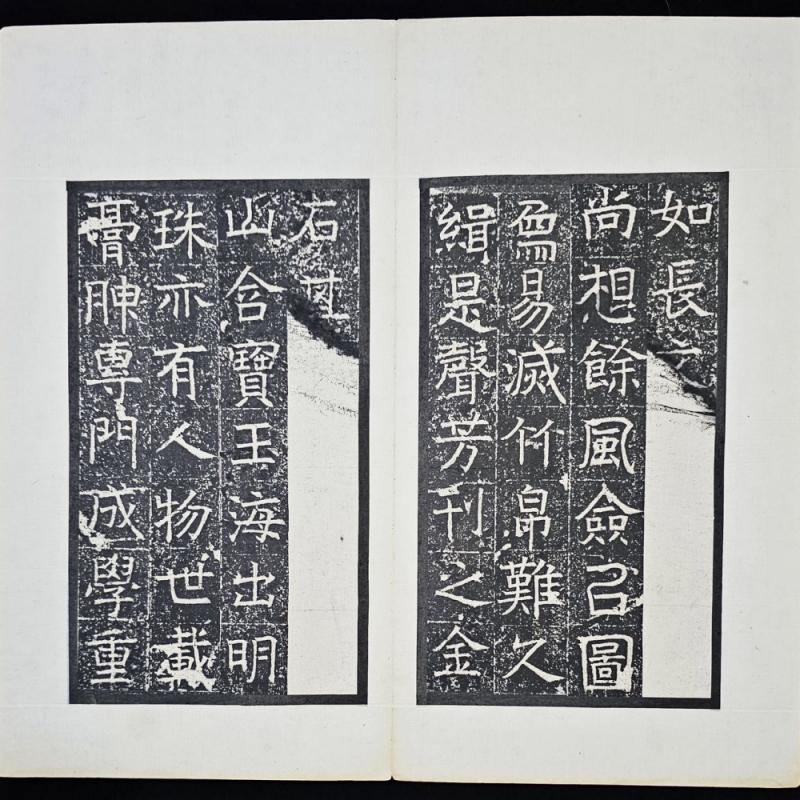 如長
尚想餘風僉㠯圖
易滅竹帛難久
緝是聲芳刊之金
石其
山含寶王海出明
珠亦有人物世載
膏腴專門成學重